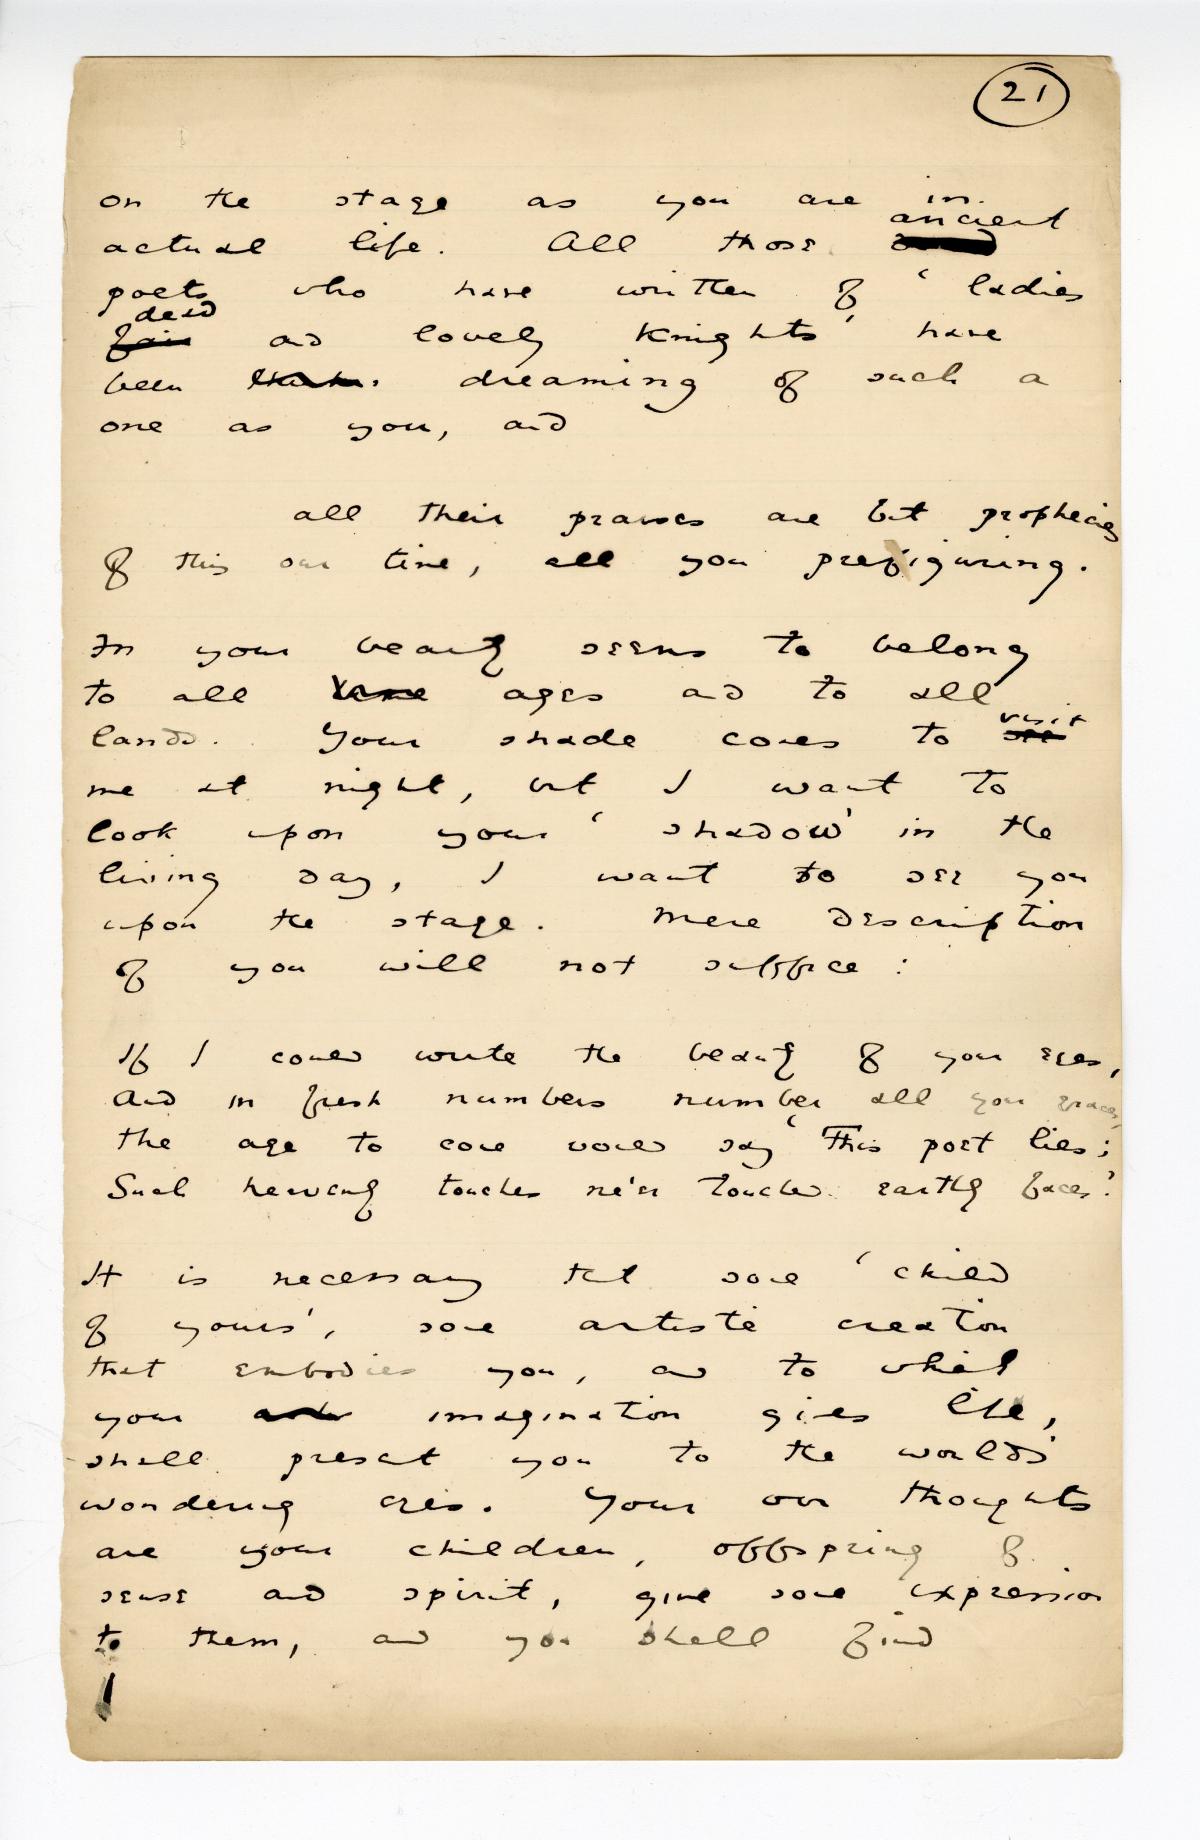 21
on the stage as you are in
actual life. All those ancient
poets who have written of 'ladies
dead
fair and lovely Knights' have
been dreaming of such a
one as you, and
all their praises are but prophecies
of this our time, all you prefiguring.
In your beauty seems to belong
to all ages and to all
lands. Your shade comes to visit
see
me at night, but I want to
look upon your 'shadow' in the
living day, I want to see you
upon the stage. Mere description
of you will not suffice:
If I could write the beauty of your eyes,
And in fresh numbers number all your graces,
The age to come would say 'This poet lies;
Such heavenly touches ne'er touched earthly faces.'
It is necessary that some 'child
of yours', some artistic creation
that embodies you, and to which
your imagination gives life,
shall present you to the world's
wondering eyes. Your own thoughts
are your children, offspring of
sense and spirit, give some expression
to them, and you shall find